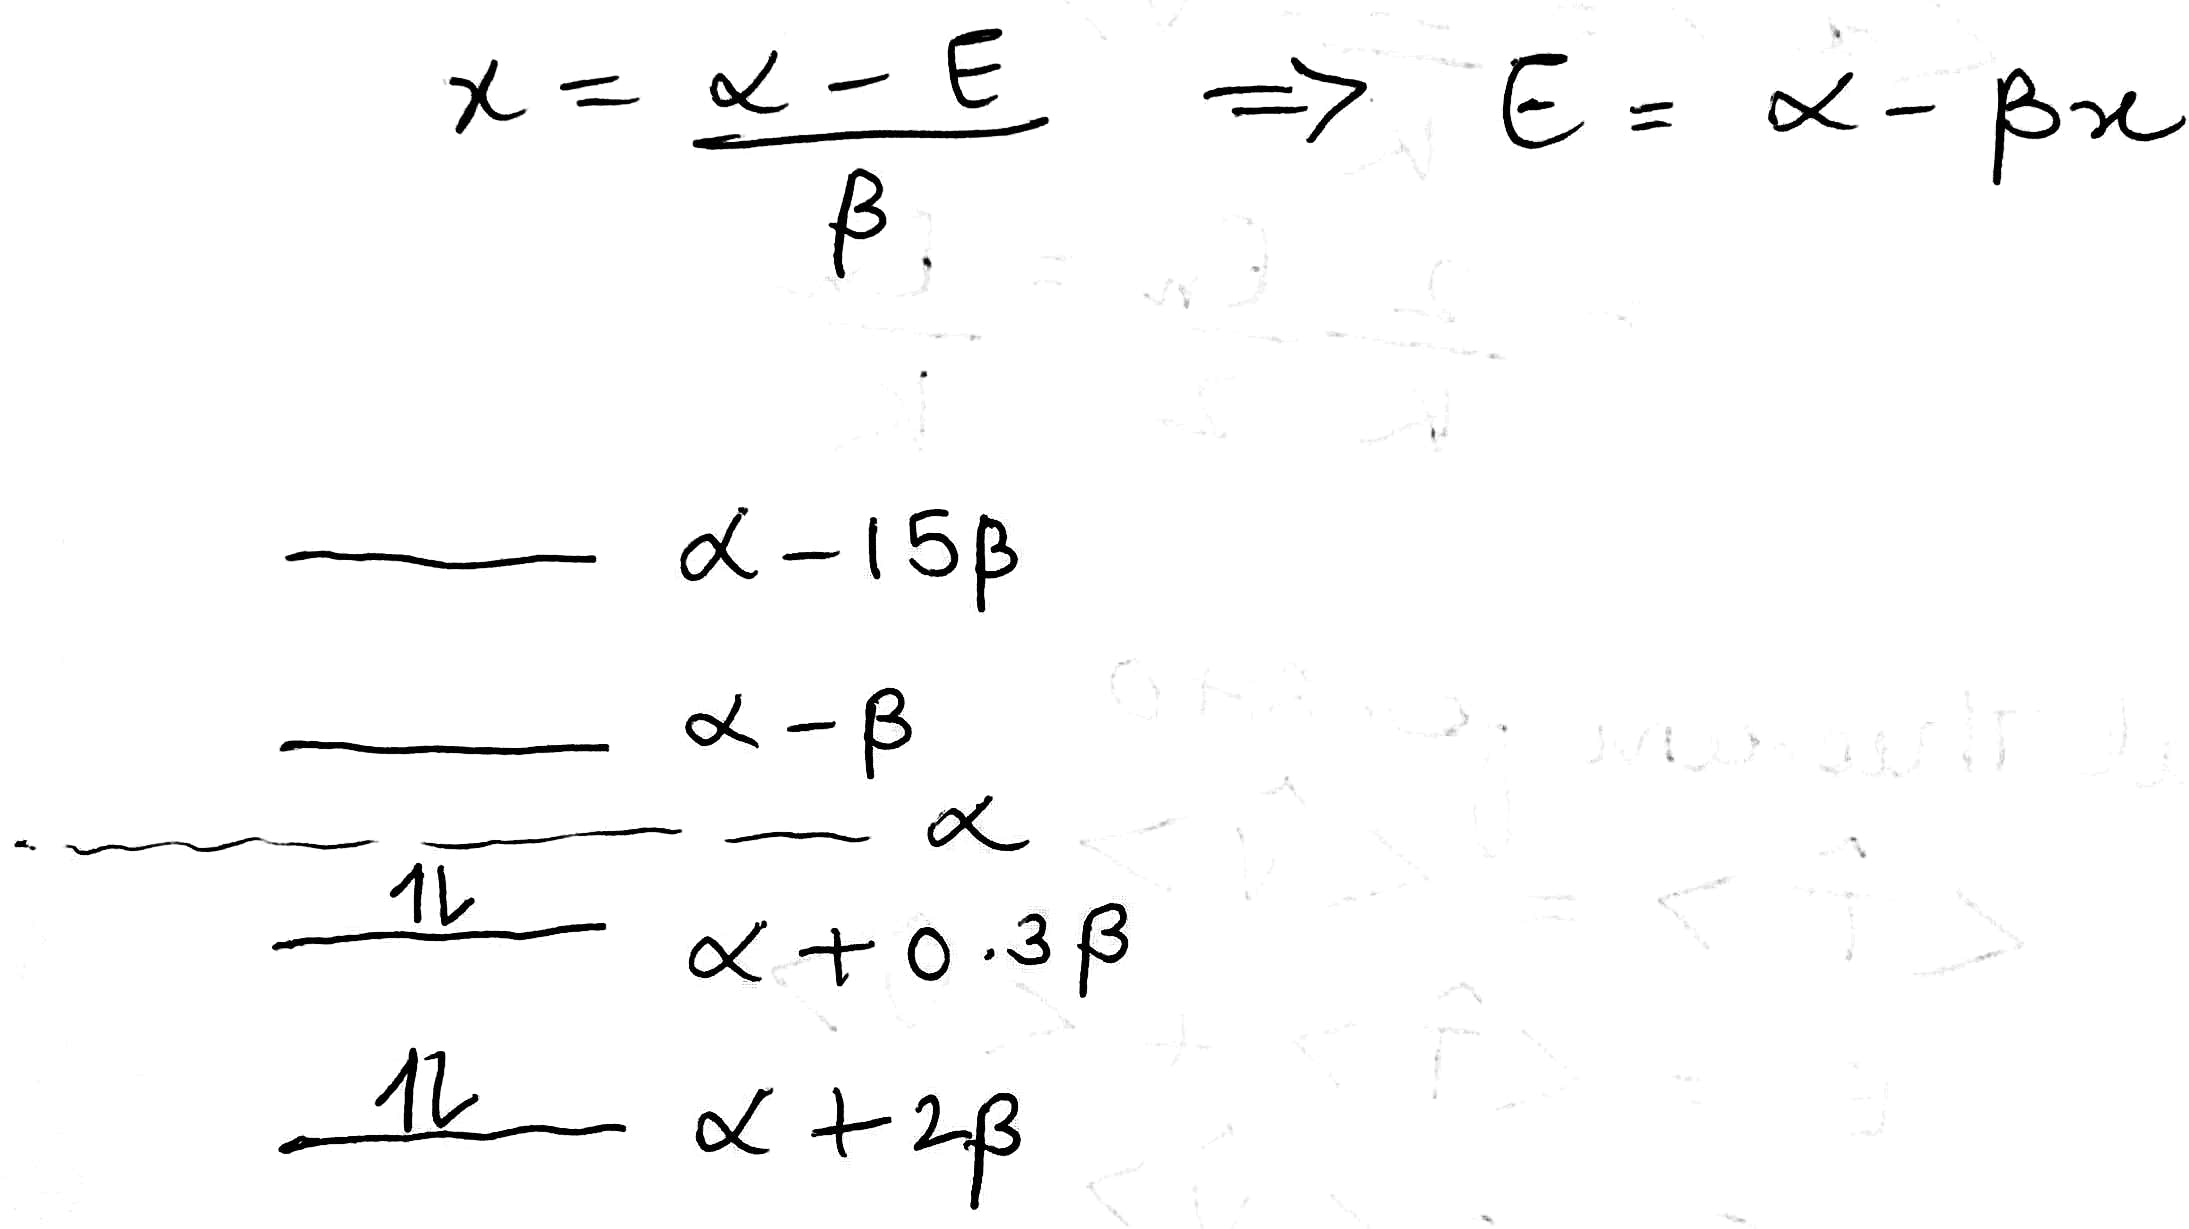 x = α - E / β ⇒ E = α - βx
α - 15β
α - β
α
⥮ α + 0.3β
⥮ α + 2β